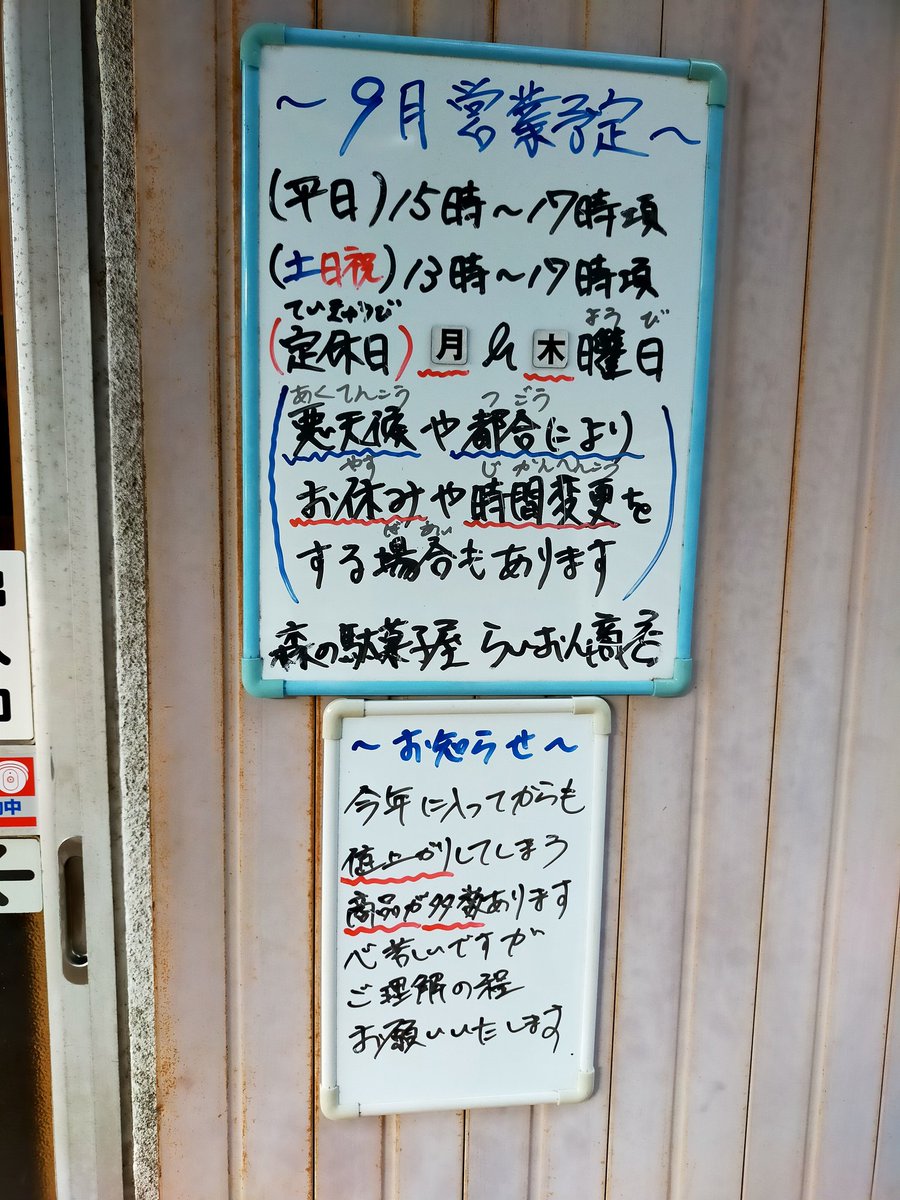 ～9月営業予定～
(平日)15時～17時頃
(土日祝)13時～17時頃
ていきゅうび
(定休日)月&木曜日
ようび
あくてんこう つごう
(悪天候や都合により
やす じかんへんこう
お休みや時間変更を
ばあい
する場合もあります)
森の駄菓子屋 らいおん商店
～お知らせ～
今年に入ってからも
値上がりしてしまう
商品が多数あります
心苦しいですが
ご理解の程
お願いいたします
中